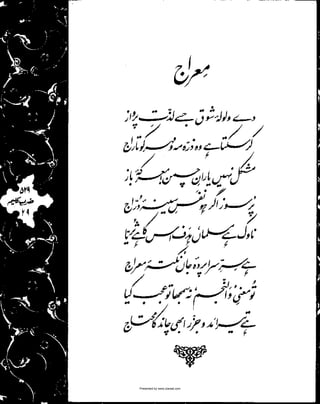 معراج
دے ولولۂ شوق جسے لذتِ پرواز
کر سکتا ہے وہ ذرّہ مہ و مہر کو تاراج
مشکل نہیں یارانِ چمن معرکۂ باز
پر سوز اگر ہو نفسِ سینۂ درّاج
ناوک ہے مسلماں، ہدف اس کا ہے ثریا
ہے سرِّ سرا پردۂ جاں نکتۂ معراج
تو معنیِ والنجم نہ سمجھا تو عجب کیا
ہے تیرا مد و جزر ابھی چاند کا محتاج
۵۲۹
ضربِ کلیم
۲۹
Presented by www.iqbalcyberlibrary.net